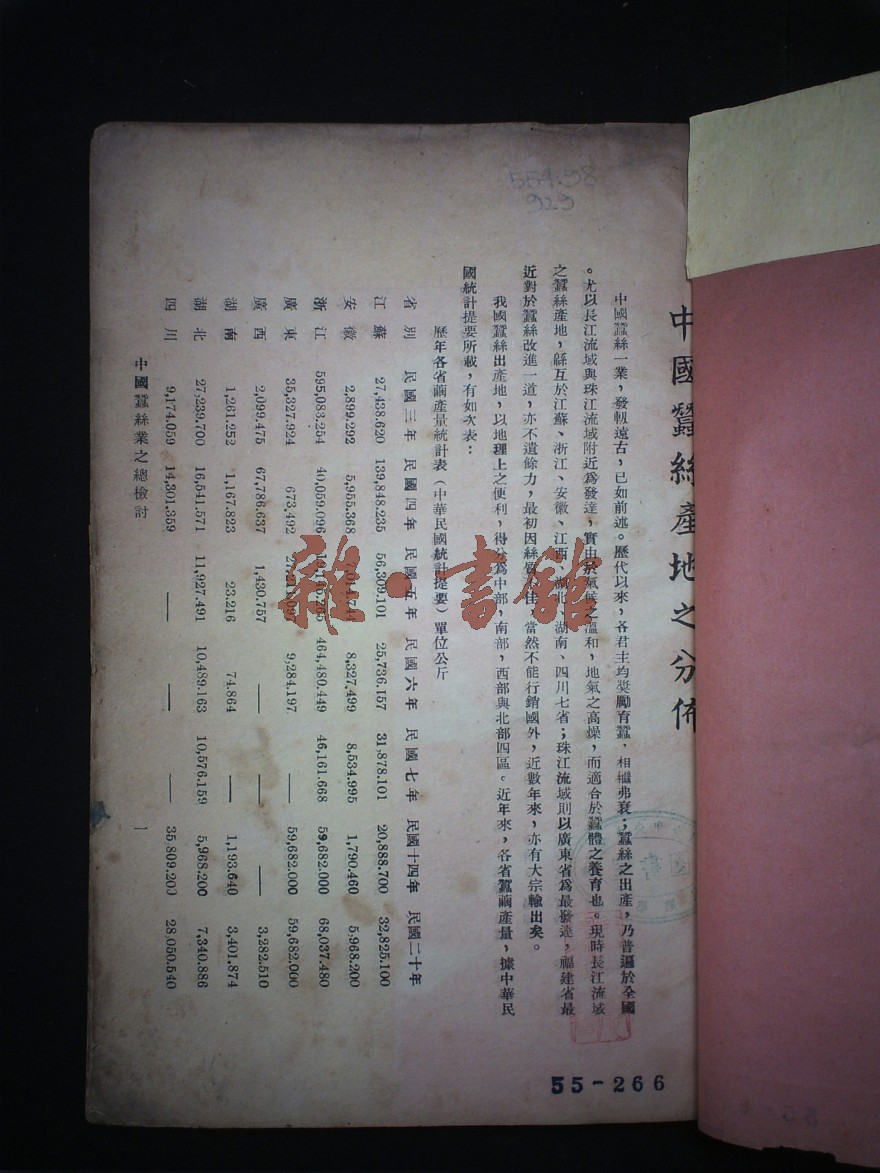 554.98
929
中國蠶絲產地之分佈
中國蠶絲一業，發軔遠古，已如前述。歷代以來，各君主均獎勵育蠶，相繼弗衰；蠶絲之出產，乃普遍於全國
。尤以長江流域與珠江流域附近爲發達，實由於氣候之溫和，地氣之高燥，而適合於蠶體之養育也。現時長江流域
之蠶絲產地，緜互於江蘇、浙江、安徽、江西、湖北、湖南、四川七省；珠江流域則以廣東省爲最發達，福建省最
近對於蠶絲改進一道，亦不遺餘力，最初因絲質 佳，當然不能行銷國外，近數年來，亦有大宗輸出矣。
我國蠶絲出產地，以地理上之便利，得分爲中部，南部，西部與北部四區。近年來，各省蠶繭產量，據中華民
國統計提要所載，有如次表：
歷年各省繭產量統計表（中華民國統計提要）單位公斤
省別 民國三年 民國四年 民國五年 民國六年 民國七年 民國十四年 民國二十年
江蘇 27,438.620 139,848.235 56,309.101 25,736.157 31,878.101 20,888.700 32,825.100
安徽 2,899.292 5,955.368 8,327.499 8,534.995 1,790.460 5,968.200
浙江 595,083.254 40,059.096 464,480.449 46,161.668 59,682.000 68,037.480
廣東 35,327.924 673,492 9,284.197 — 59,682.000 59,682.000
廣西 2,099.475 67,786.637 1,430.757 — — — 3,282.510
湖南 1,261.252 1,167.823 23.216 74.864 — 1,193.640 3,401.874
湖北 27,239.700 16,541.571 11,927.491 10,489.163 10,576.159 5,968.200 7,340.886
四川 9,174.059 14,301.359 — — — 35,809.200 28,050.540
中國蠶絲業之總檢討 一
55-266
雜·書館